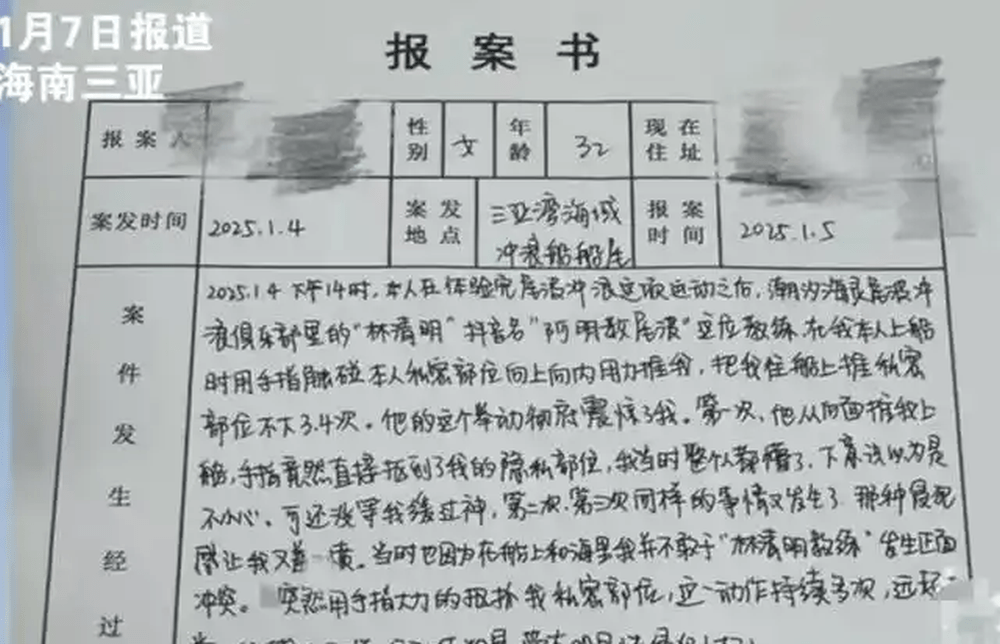 1月7日报道
海南三亚
报案书
报案人 性别 女 年龄 32 现在住址
案发时间 2025.1.4 案发地点 三亚湾海域冲浪船船尾 报案时间 2025.1.5
案件发生经过
2025.1.4 下午14时,本人在体验完尾波冲浪这项运动之后,潮汐海浪尾波冲
浪俱乐部里的“林清明”抖音名“阿明教尾波”这位教练,在我本人上船
时用手指触碰本人私密部位向上向内用力推我,把我往船上推私密
部位不下3.4次。他的这个举动彻底震惊了我。第一次,他从后面推我上
船,手指竟然直接抵到了我的隐私部位,我当时整个人都懵了,下意识以为是
不小心。可还没等我缓过神,第二次、第三次同样的事情又发生了。那种侵犯
感让我又羞 愤。当时也因为在船上和海里我并不敢于“林清明教练”发生正面
冲突。 突然用手指大力的 我私密部位,这一动作持续多次,远超